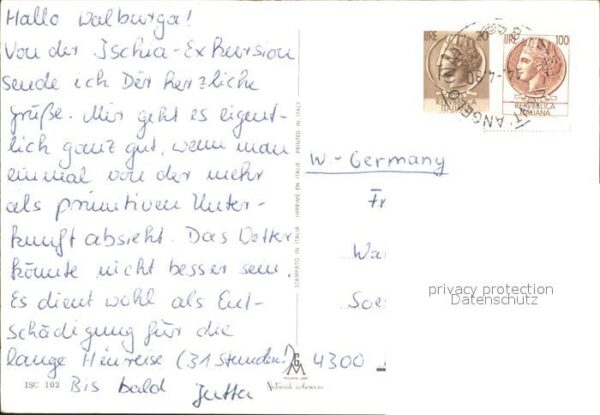 Hallo Walburga!
Von der Ischia-Exkursion
sende ich Dir herzliche
Grüße. Mir geht es eigent-
lich ganz gut, wenn man
einmal von der mehr
als primitiven Unter-
kunft absieht. Das Wetter
könnte nicht besser sein.
Es dient wohl als Ent-
schädigung für die
lange Hinreise (31 Stunden!)
Bis bald Jutta
ISC 102
STAMPATO IN ITALIA IMPRIMÉ EN ITALIE PRINTED IN ITALY
LIRE 20
REPVBBLICA
ITALIANA
LIRE 100
REPVBBLICA
ITALIANA
T'ANGELO
W-Germany
Fr
Wa
Soe
4300
privacy protection
Datenschutz